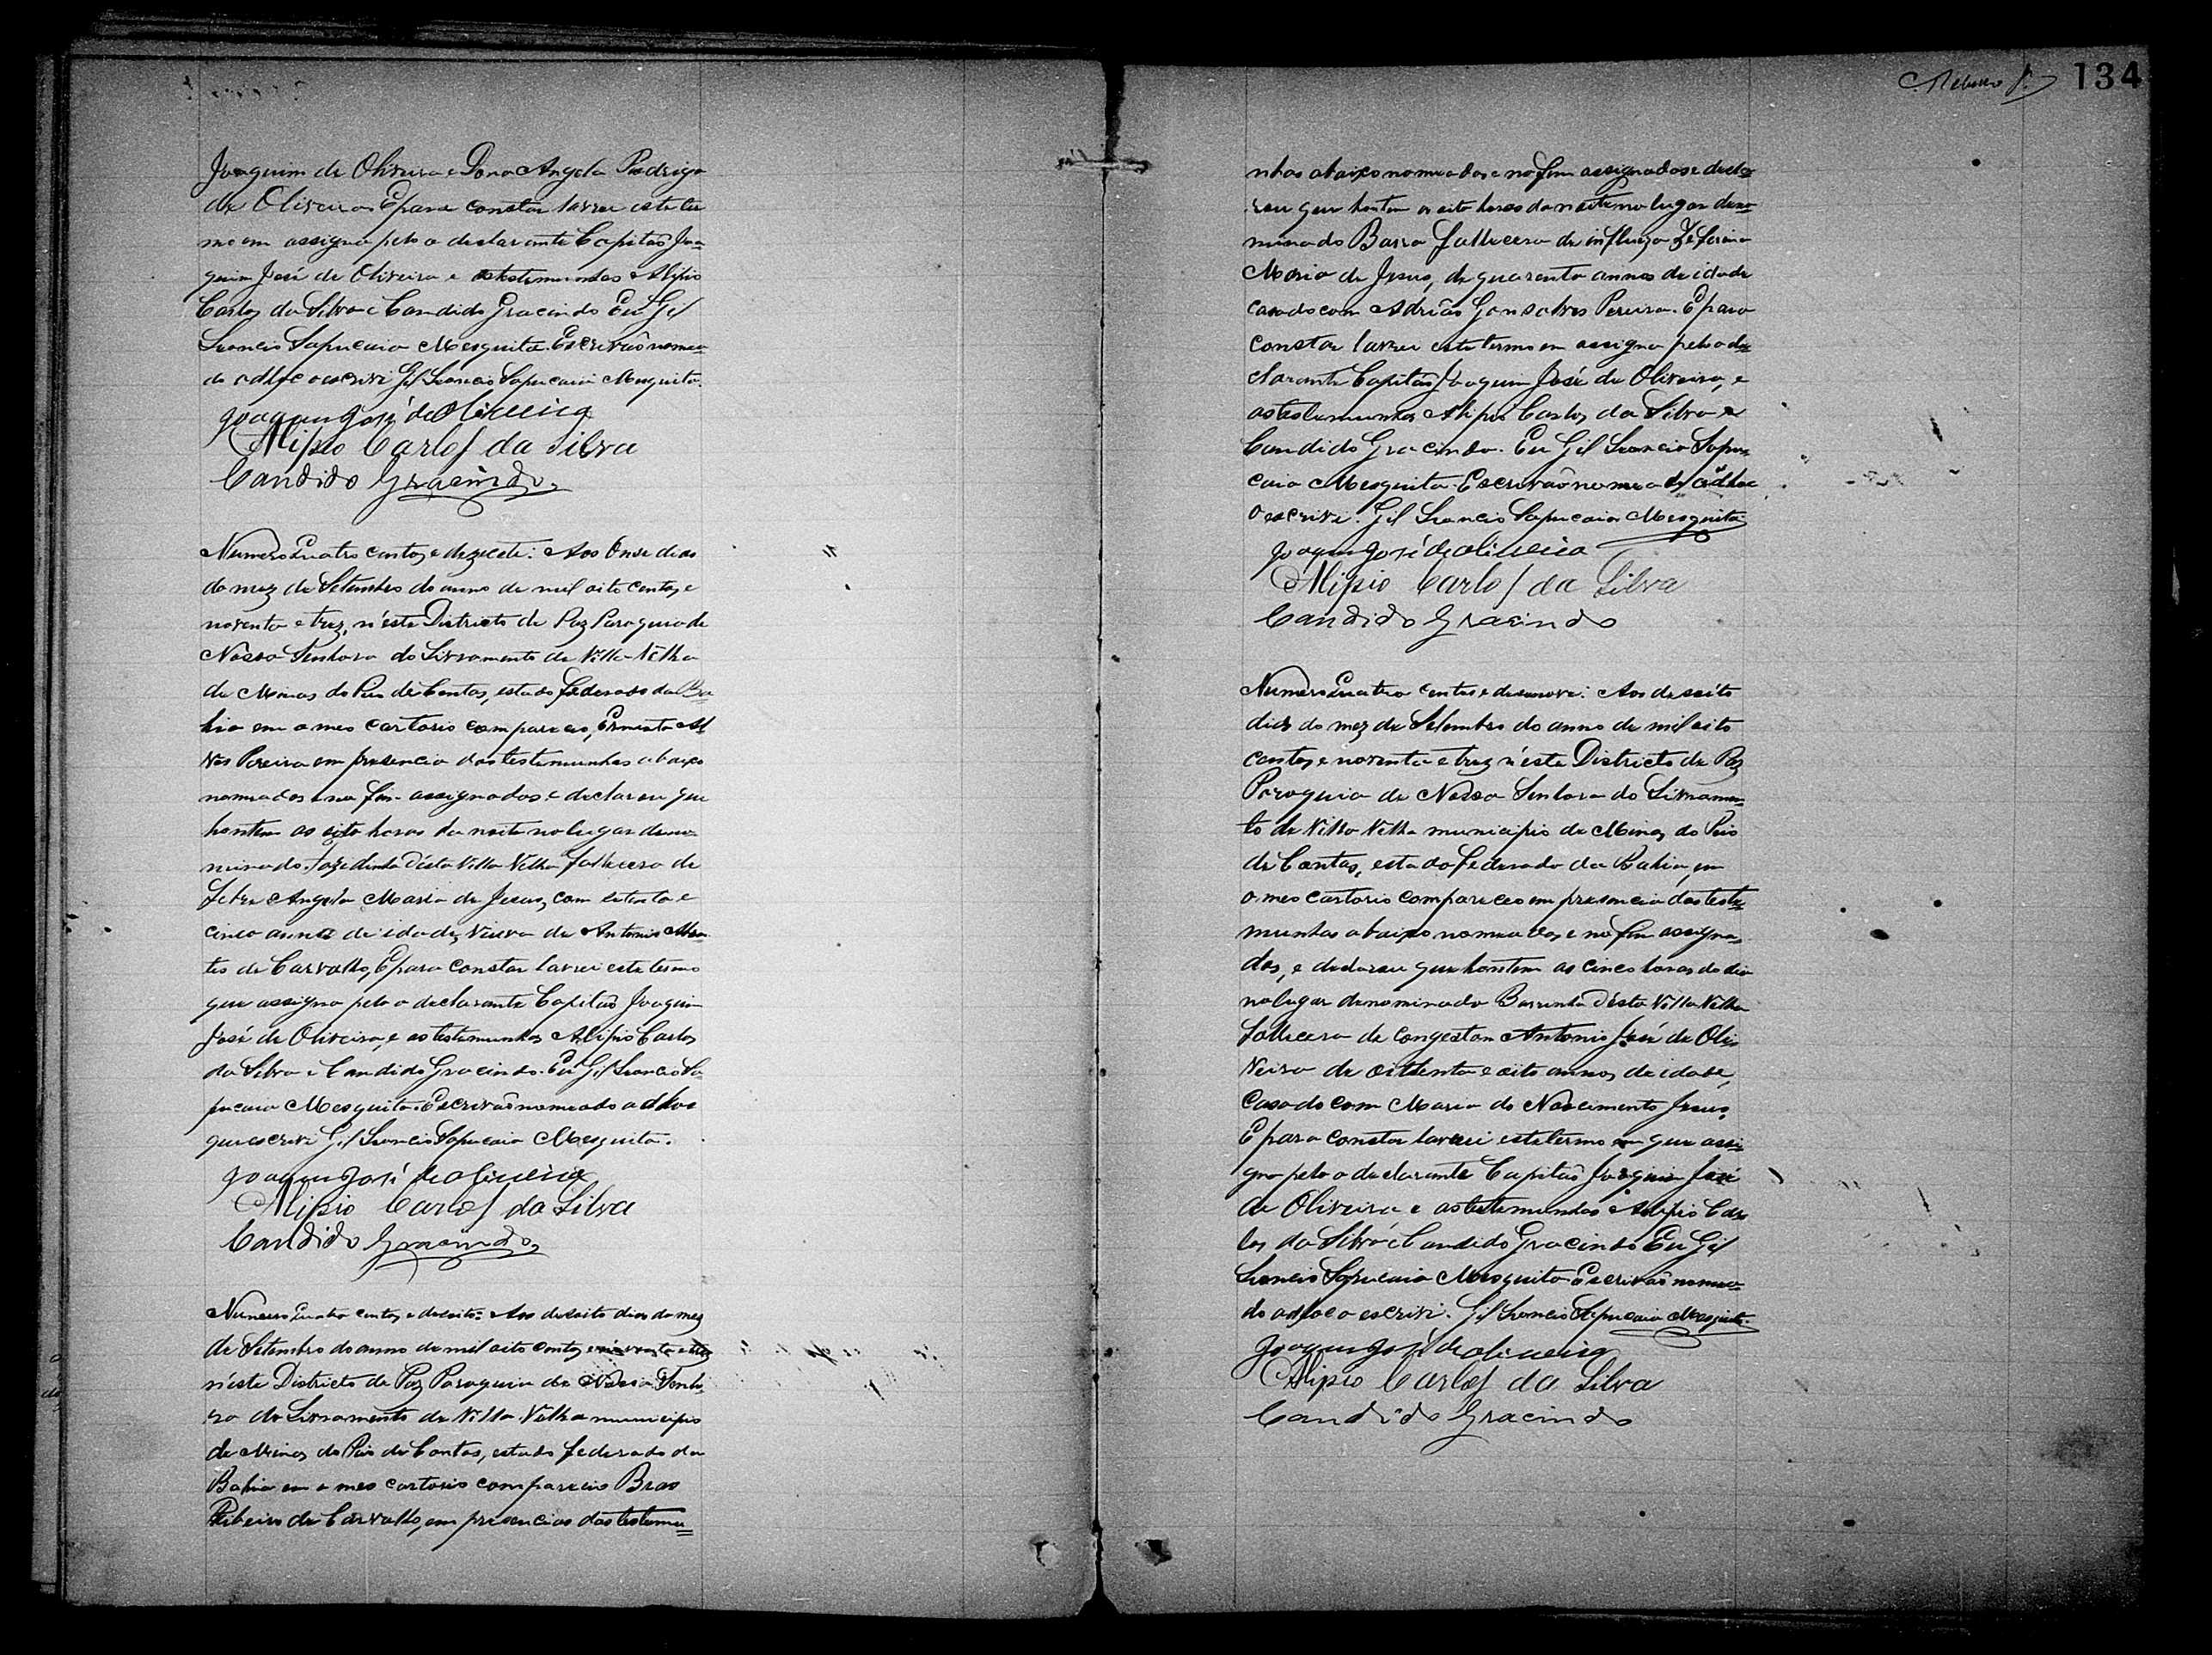 Joaquim de Oliveira e Dona Angela Rodrigo
de Oliveira. E para constar lavrei este ter
mo em assigna pelo o declarante Capitaõ Joa
quim José de Oliveira e as testemunhas Alipio
Carlos da Silva e Candido Gracindo Eu Gil
Leoncio Sapucaia Mesquita. Escrivaõ nomea
do adhoc o escrivi Gil Leoncio Sapucaia Mesquita.
Joaquim José de Oliveira
Alipio Carlos da Silva
Candido Gracindo
Numero Quatro centos e dezecete: Aos Onse dias
do mez de Setembro do anno de mil oito centos e
noventa e trez, n'este Districto de Paz Paroquia de
Nossa Senhora do Livramento de Villa-Velha
de Minas do Rio de Contas, estado federado da Ba
hia em o meo cartorio compareceo, Ernesto Al
ves Pereira em presencia das testemunhas abaixo
nomeados e no fim assignados e declarou que
hontem as oito horas da noite no lugar deno
minado Fazedinha d'esta Villa Velha fallecera de
Febre Angela Maria de Jesus, com setenta e
cinco annos de idade, viuva de Antonio
de Carvalho, E para constar lavrei este termo
que assigna pelo o declarante Capitaõ Joaquim
José de Oliveira, e as testemunhas Alipio Carlos
da Silva e Candido Gracindo. Eu Gil Leoncio Sa
pucaia Mesquita. Escrivaõ nomeado adhoc
que escrivi Gil Leoncio Sapucaia Mesquita.
Joaquim José de Oliveira
Alipio Carlos da Silva
Candido Gracindo
Numero Quatro centos e desoito: Aos desoito dias do mez
de Setembro do anno de mil oito centos e noventa e trez
n'este Districto de Paz Paroquia de Nossa Senho
ra do Livramento de Villa Velha municipio
de Minas do Rio de Contas, estado federado da
Bahia em o meo cartorio compareceo Bras
Ribeiro de Carvalho, em presencias das testemu
134
nhas abaixo nomeados e no fim assignados e decla
rou que hontem as oito horas da noite no lugar deno
minado Barra fallecera de influeza Zeferina
Maria de Jesus, de quarenta annos de idade
casado com Adriaõ Gonsalves Pereira. E para
constar lavrei este termo em assigna pelo o de
clarante Capitaõ Joaquim José de Oliveira, e
as testemunhas Alipio Carlos da Silva e
Candido Gracindo. Eu Gil Leoncio Sapu
caia Mesquita. Escrivaõ nomeado adhoc
o escrivi. Gil Leoncio Sapucaia Mesquita
Joaquim José de Oliveira
Alipio Carlos da Silva
Candido Gracindo
Numero Quatro centos e desenove: Aos desoito
dias do mez de Setembro do anno de mil oito
centos e noventa e trez n'este Districto de Paz
Paroquia de Nossa Senhora do Livramen
to de Villa Velha municipio de Minas do Rio
de Contas, estado federado da Bahia, em
o meo cartorio compareceo em presencia das teste
munhas abaixo nomeados, e no fim assigna
dos, e declarou que hontem as cinco horas do dia
no lugar denominado Barrinha d'esta Villa Velha
fallecera de congestam Antonio José de Oli
veira de oittenta e oito annos de idade,
Casado com Maria do Nascimento Jesus,
E para constar lavrei este termo em que assi
gna pelo o declarante Capitaõ Joaquim José
de Oliveira e as testemunhas Alipio Car
los da Silva e Candido Gracindo Eu Gil
Leoncio Sapucaia Mesquita Escrivaõ nomea
do adhoc o escrivi. Gil Leoncio Sapucaia Mesquita.
Joaquim José de Oliveira
Alipio Carlos da Silva
Candido Gracindo